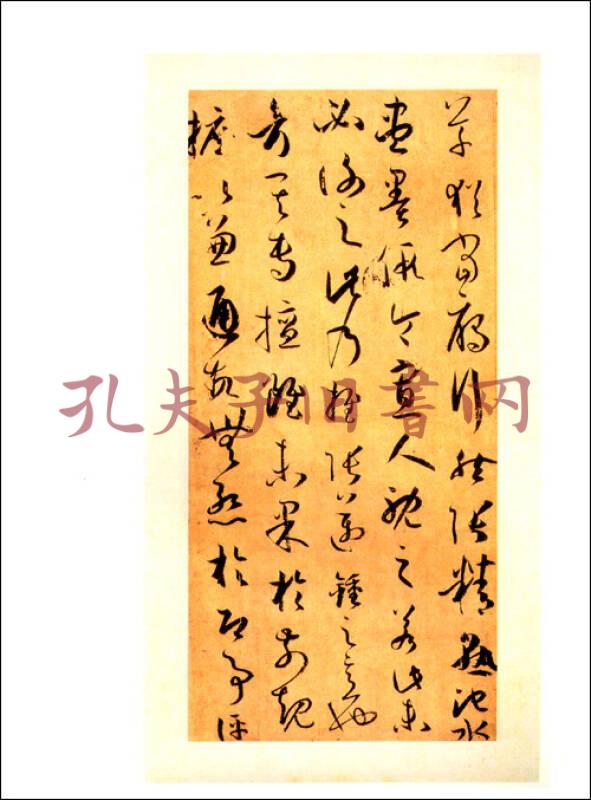 草猶當雁行然張精熟池水
盡墨假令寡人耽之若此未
必謝之此乃推張邁鍾之意也
考其專擅雖未果於前規
摭以兼通故無慚於即事評
孔夫子旧書网